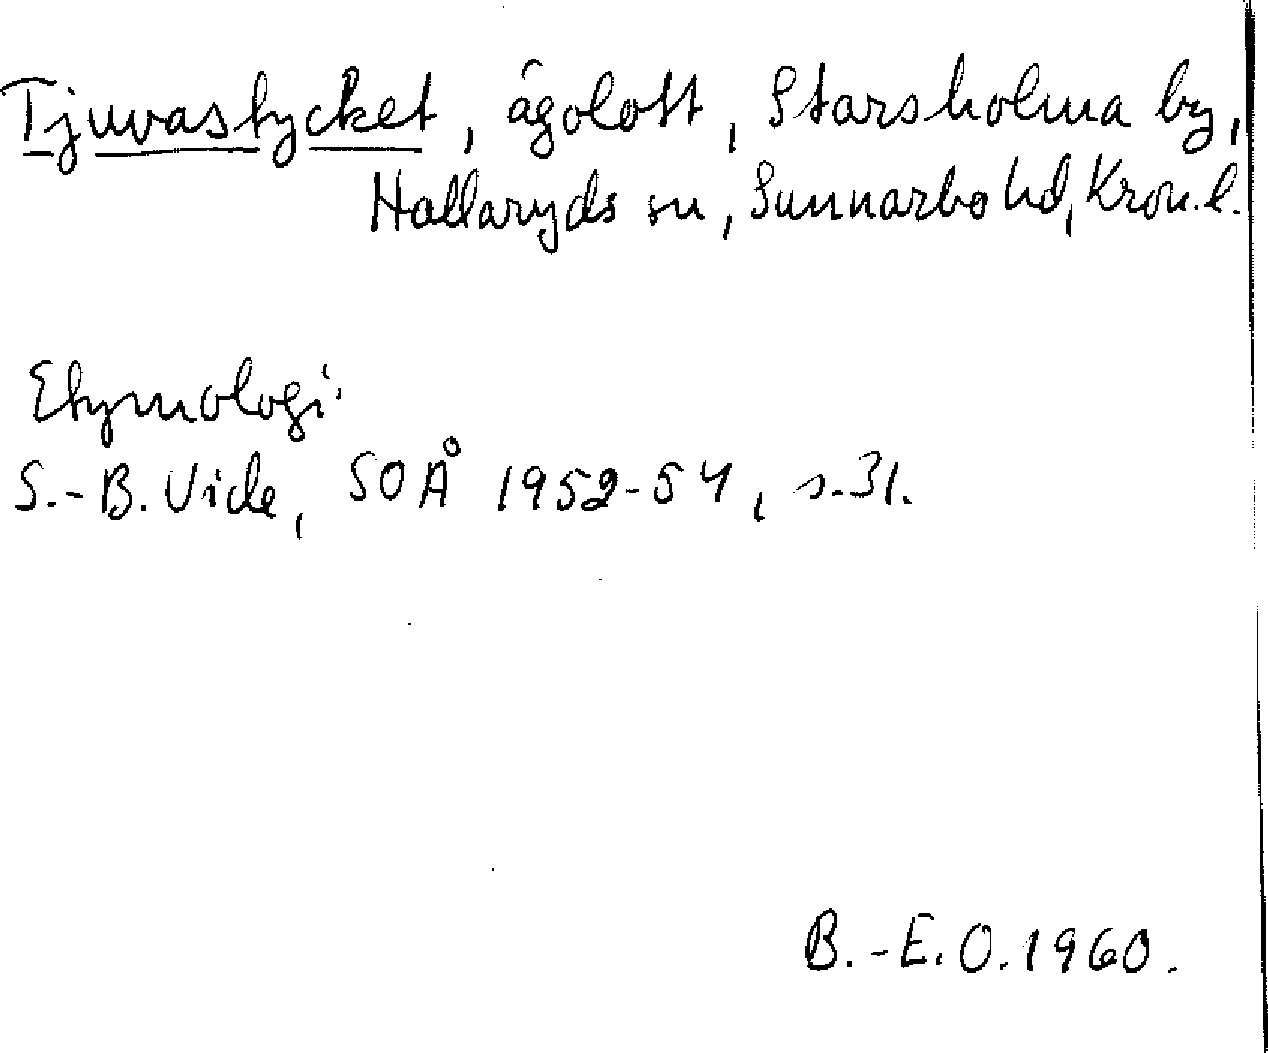 Tjuvastycket, ägolott, Starsholma by,
Hallaryds sn, Sunnarbo hd, Kron. l.
Etymologi.
S.-B. Vide, SOÅ 1952-54, s. 31.
B.-E. O. 1960.